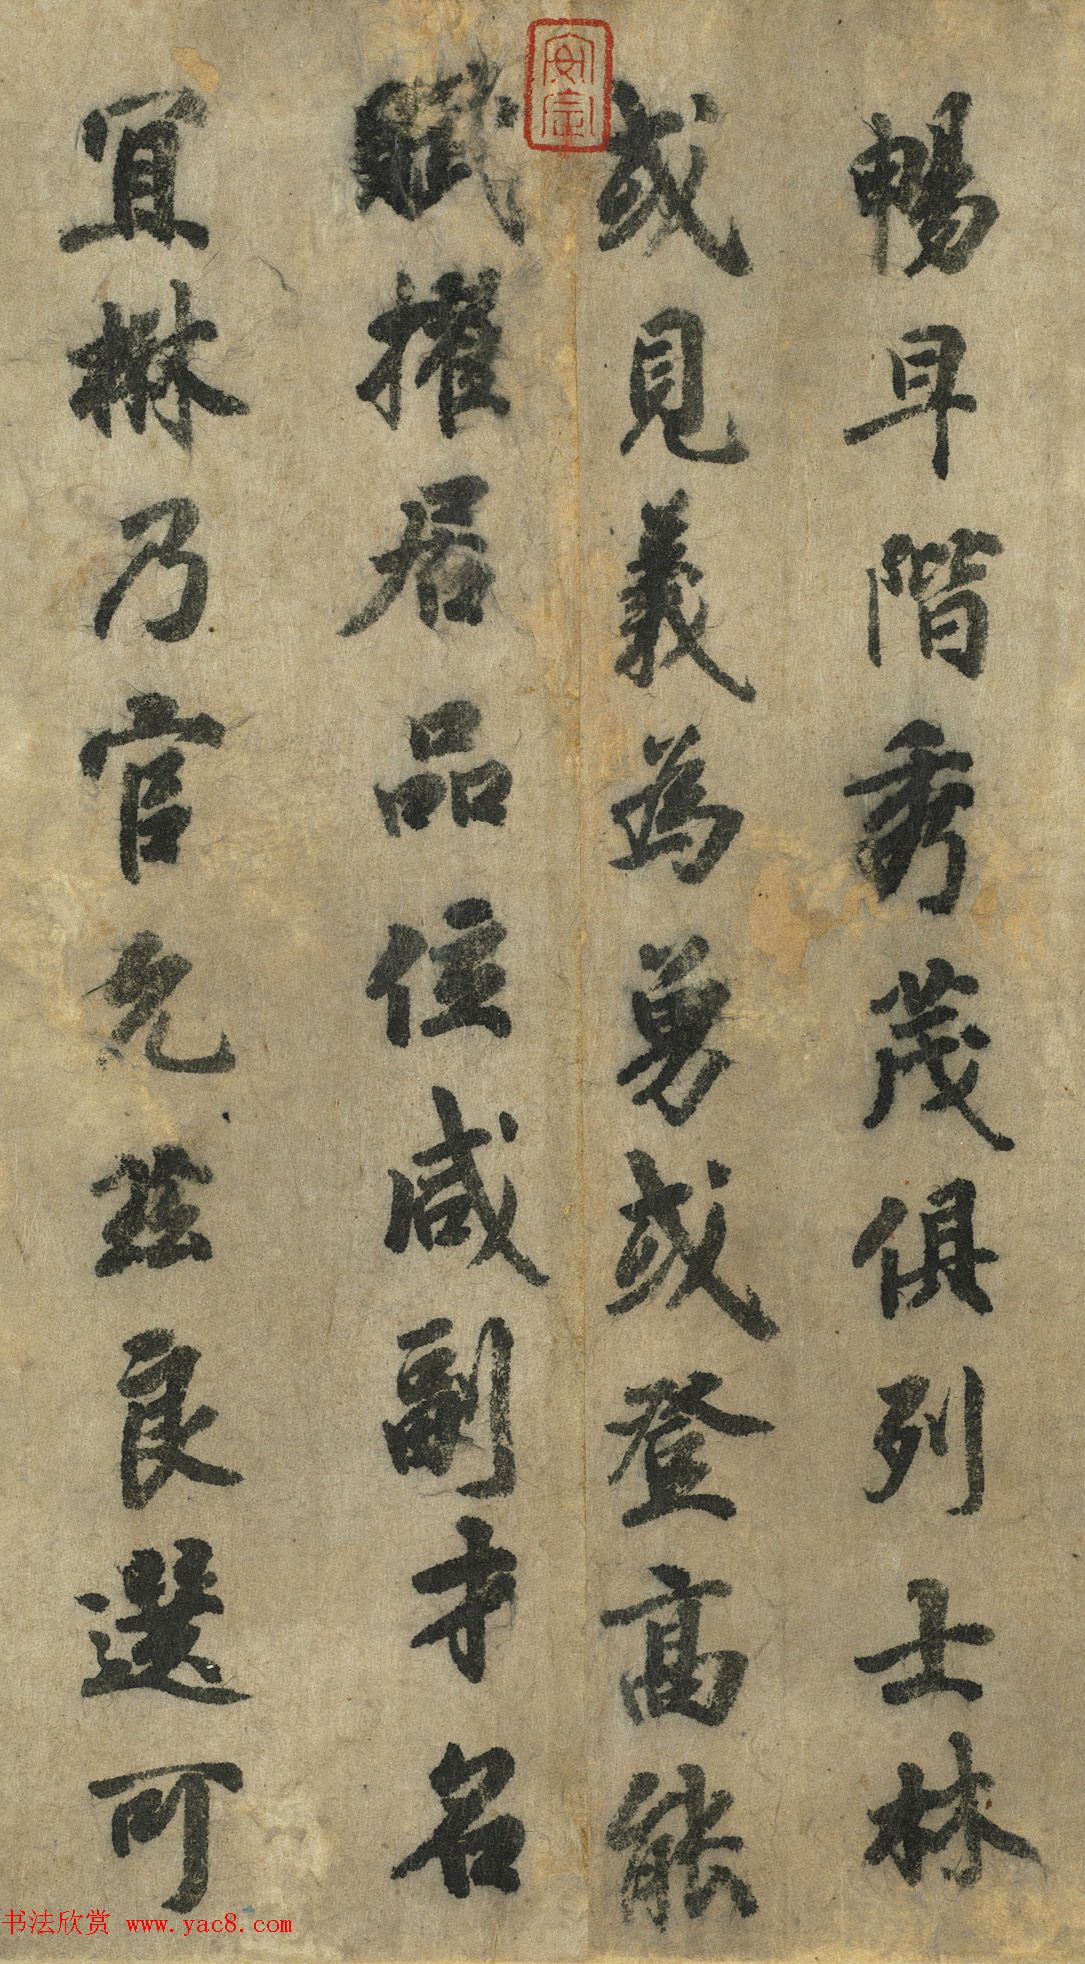 暢耳階秀茂俱列士林
或見義為勇或登高能
賦擢居品位咸副才名
宜楙乃官允茲良選可
书法欣赏 www.yac8.com